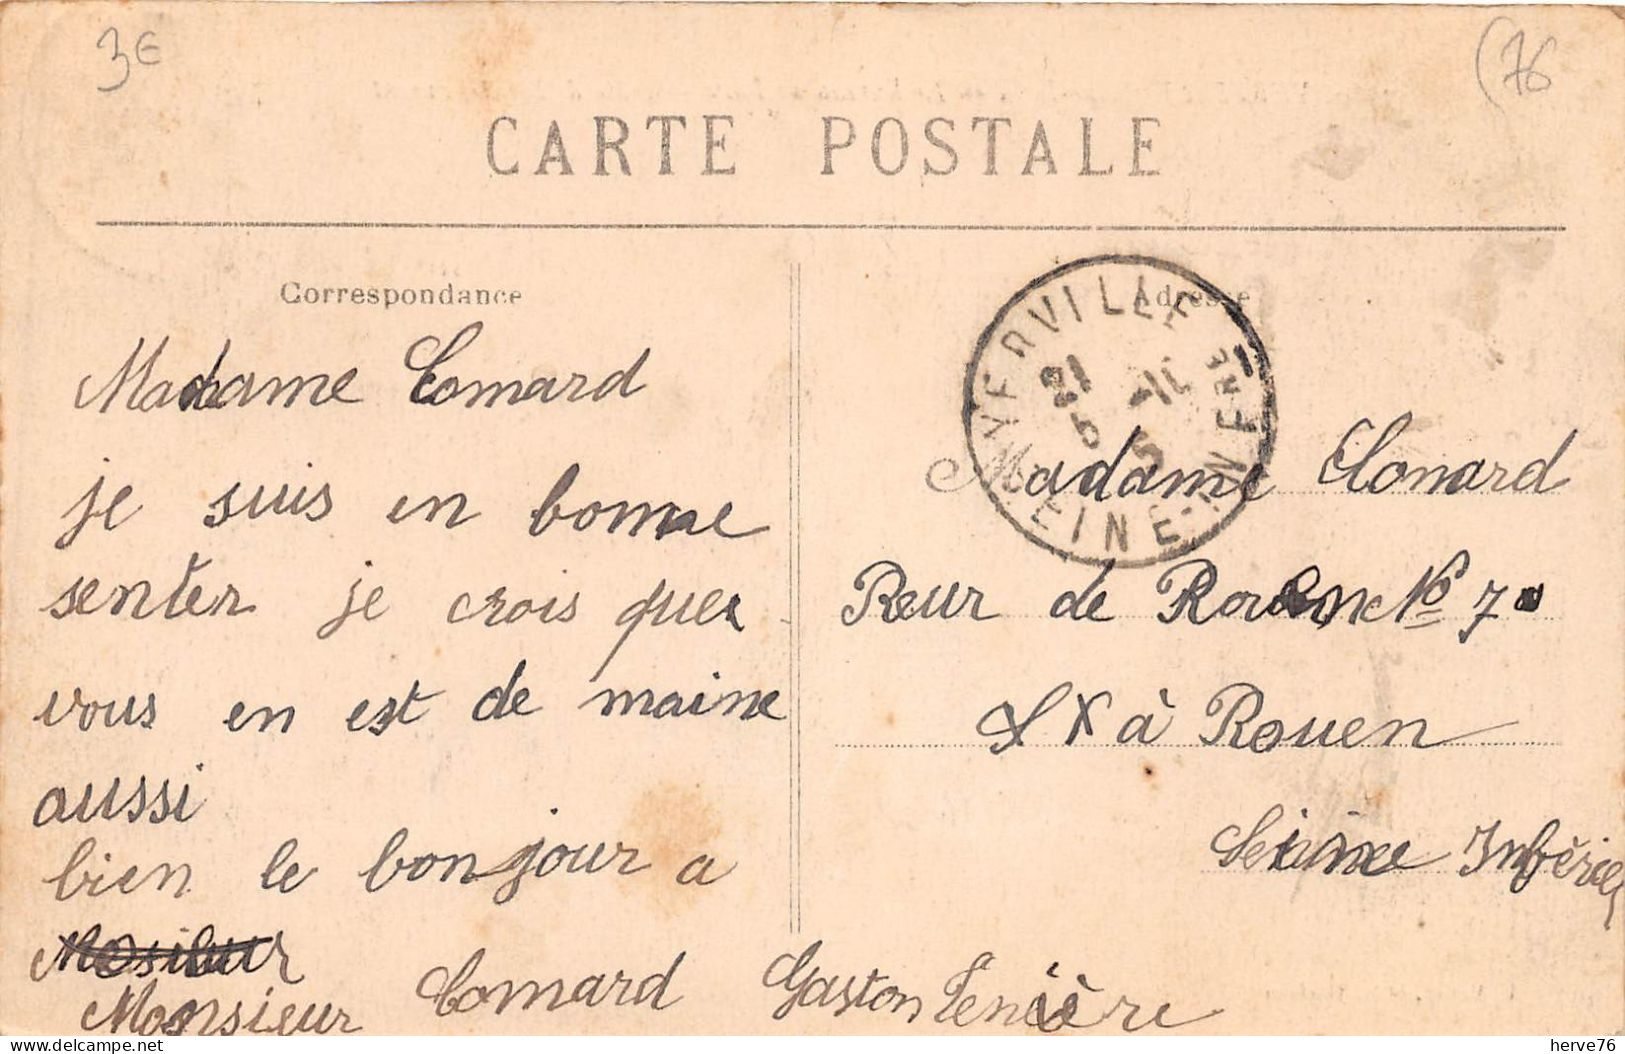 3€
(76
CARTE POSTALE
Correspondance
Adresse
Madame Comard
je suis en bonne
senter je crois que
vous en est de maine
aussi
bien le bonjour a
Mosieur
Monsieur Comard Gaston
YERVILLE
SEINE-INFRE
21
5
Madame Clomard
Reur de Rouen No 70
à Rouen
Seine Inférie
delcampe.net
herve76